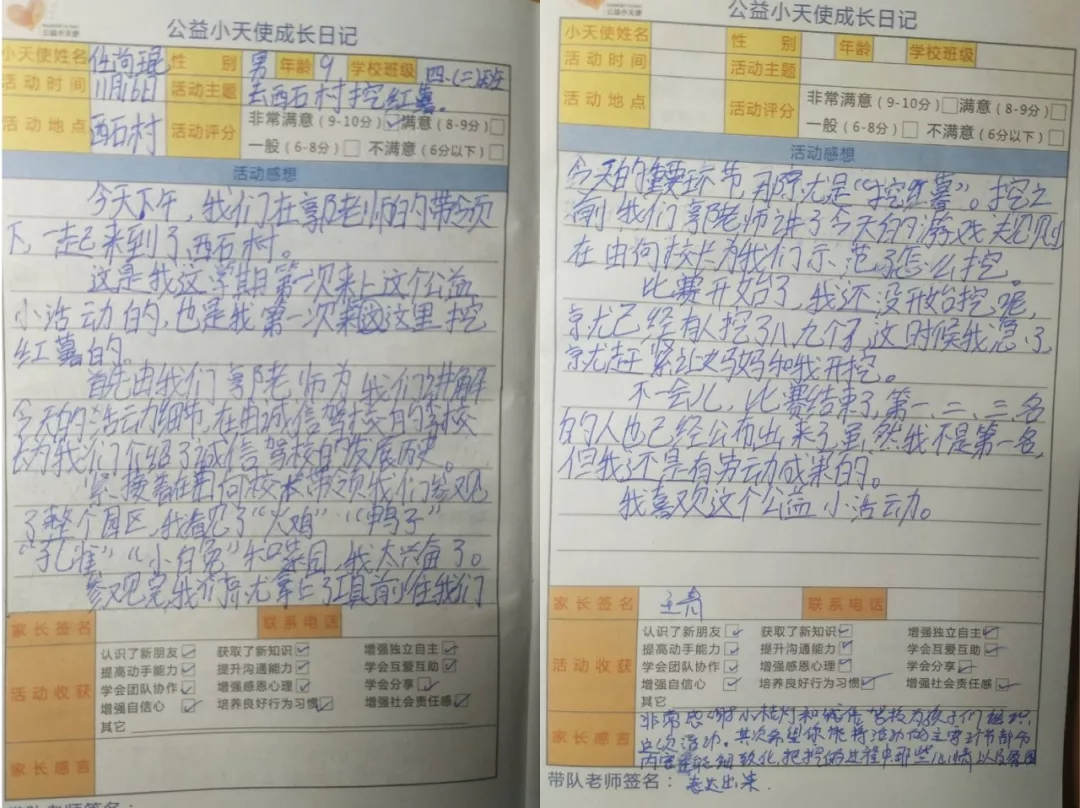 公益小天使
公益小天使成长日记
小天使姓名 任尚琨 性别 男 年龄 9 学校班级 四.(二)班
活动时间 11月16日 活动主题 去西石村挖红薯。
活动地点 西石村 活动评分 非常满意(9-10分) 满意(8-9分)
一般(6-8分) 不满意(6分以下)
活动感想
今天下午,我们在郭老师的带领
下一起来到了西石村。
这是我这学期第一次来上这个公益
小活动的,也是我第一次来这里挖
红薯的。
首先由我们郭老师为我们讲解
今天的活动细节,在由诚信驾校的驾校
长为我们介绍了诚信驾校的发展历史。
紧接着在由何校长带领我们参观
了整个园区,我看见了“火鸡”“鸭子”
“孔雀”“小白兔”和菜园,我太兴奋了。
参观完,我们就拿上了工具前往我们
家长签名 联系电话
活动收获
认识了新朋友 获取了新知识 增强独立自主
提高动手能力 提升沟通能力 学会互爱互助
学会团队协作 增强感恩心理 学会分享
增强自信心 培养良好行为习惯 增强社会责任感
其它
家长感言
带队老师签名:
公益小天使
公益小天使成长日记
小天使姓名 性别 年龄 学校班级
活动时间 活动主题
活动地点 活动评分 非常满意(9-10分) 满意(8-9分)
一般(6-8分) 不满意(6分以下)
活动感想
今天的重要环节那就是“挖红薯”。挖之
前我们郭老师讲了今天的游戏规则
在由何校长为我们示范了怎么挖。
比赛开始了,我还没开始挖呢,
就已经有人挖了八九个了,这时候我急了,
就赶紧让妈妈和我开挖。
不会儿,比赛结束了,第一、二、三、名
的人也已经公布出来了,虽然我不是第一名,
但我还是有劳动成果的。
我喜欢这个公益小活动。
家长签名 王青 联系电话
活动收获
认识了新朋友 获取了新知识 增强独立自主
提高动手能力 提升沟通能力 学会互爱互助
学会团队协作 增强感恩心理 学会分享
增强自信心 培养良好行为习惯 增强社会责任感
其它
家长感言
非常感谢小桔灯和诚信驾校为孩子们组织
这次活动。其次希望你能将活动的主要环节部分
内容能细致化,把挖的过程中那些心情以及
表达出来.
带队老师签名: